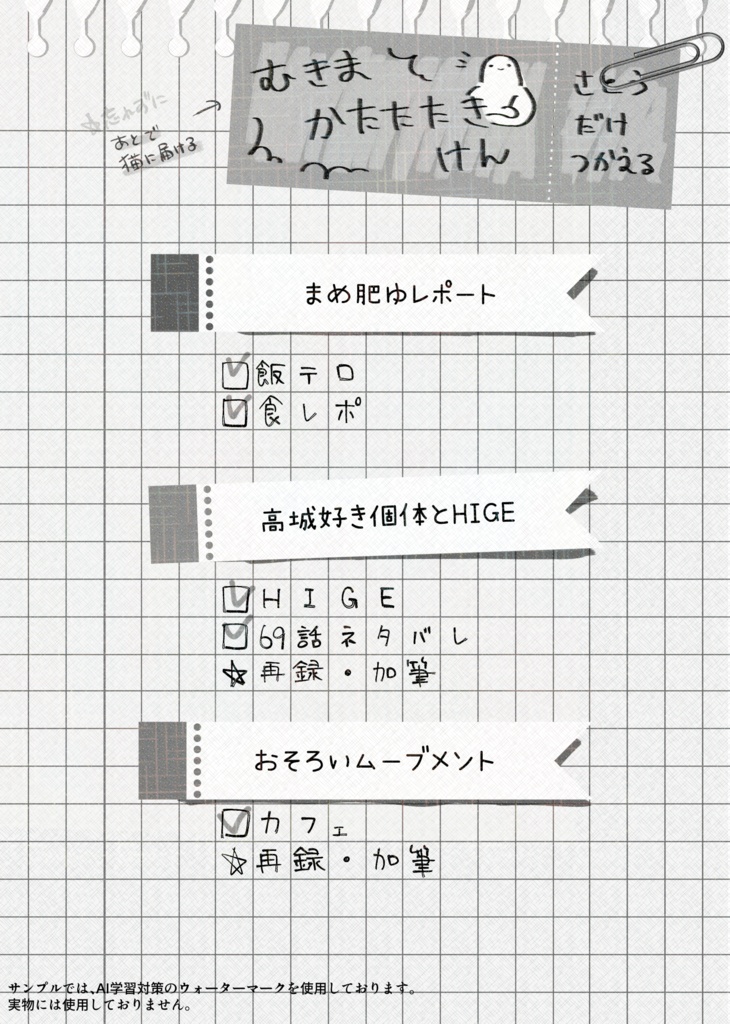 むきまてく
かたたたき
けん
さとう
だけ
つかえる
わすれずに
あとで
猫に届ける
まめ肥ゆレポート
飯テロ
食レポ
高城好き個体とHIGE
HIGE
69話ネタバレ
☆再録・加筆
おそろいムーブメント
カフェ
☆再録・加筆
サンプルでは、AI学習対策のウォーターマークを使用しております。
実物には使用しておりません。